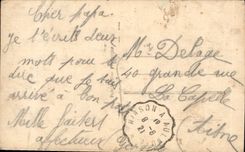 Cher papa
je t'écris deux
mots pour te
dire que je suis
arrivé à bon port
Mille baisers
affectueux
Mr Delage
40 grande rue
La Capelle
(Aisne)